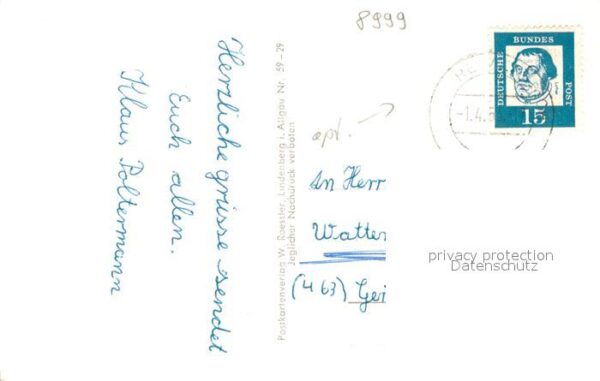 8999
Herzliche grüsse sendet
Euch allen.
Klaus Poltermann
Postkartenverlag W. Roessler, Lindenberg i. Allgäu Nr. 59-29
Jeglicher Nachdruck verboten
DEUTSCHE
BUNDES
POST
15
-1.4.6
An Herr
Watter
(463)
privacy protection
Datenschutz